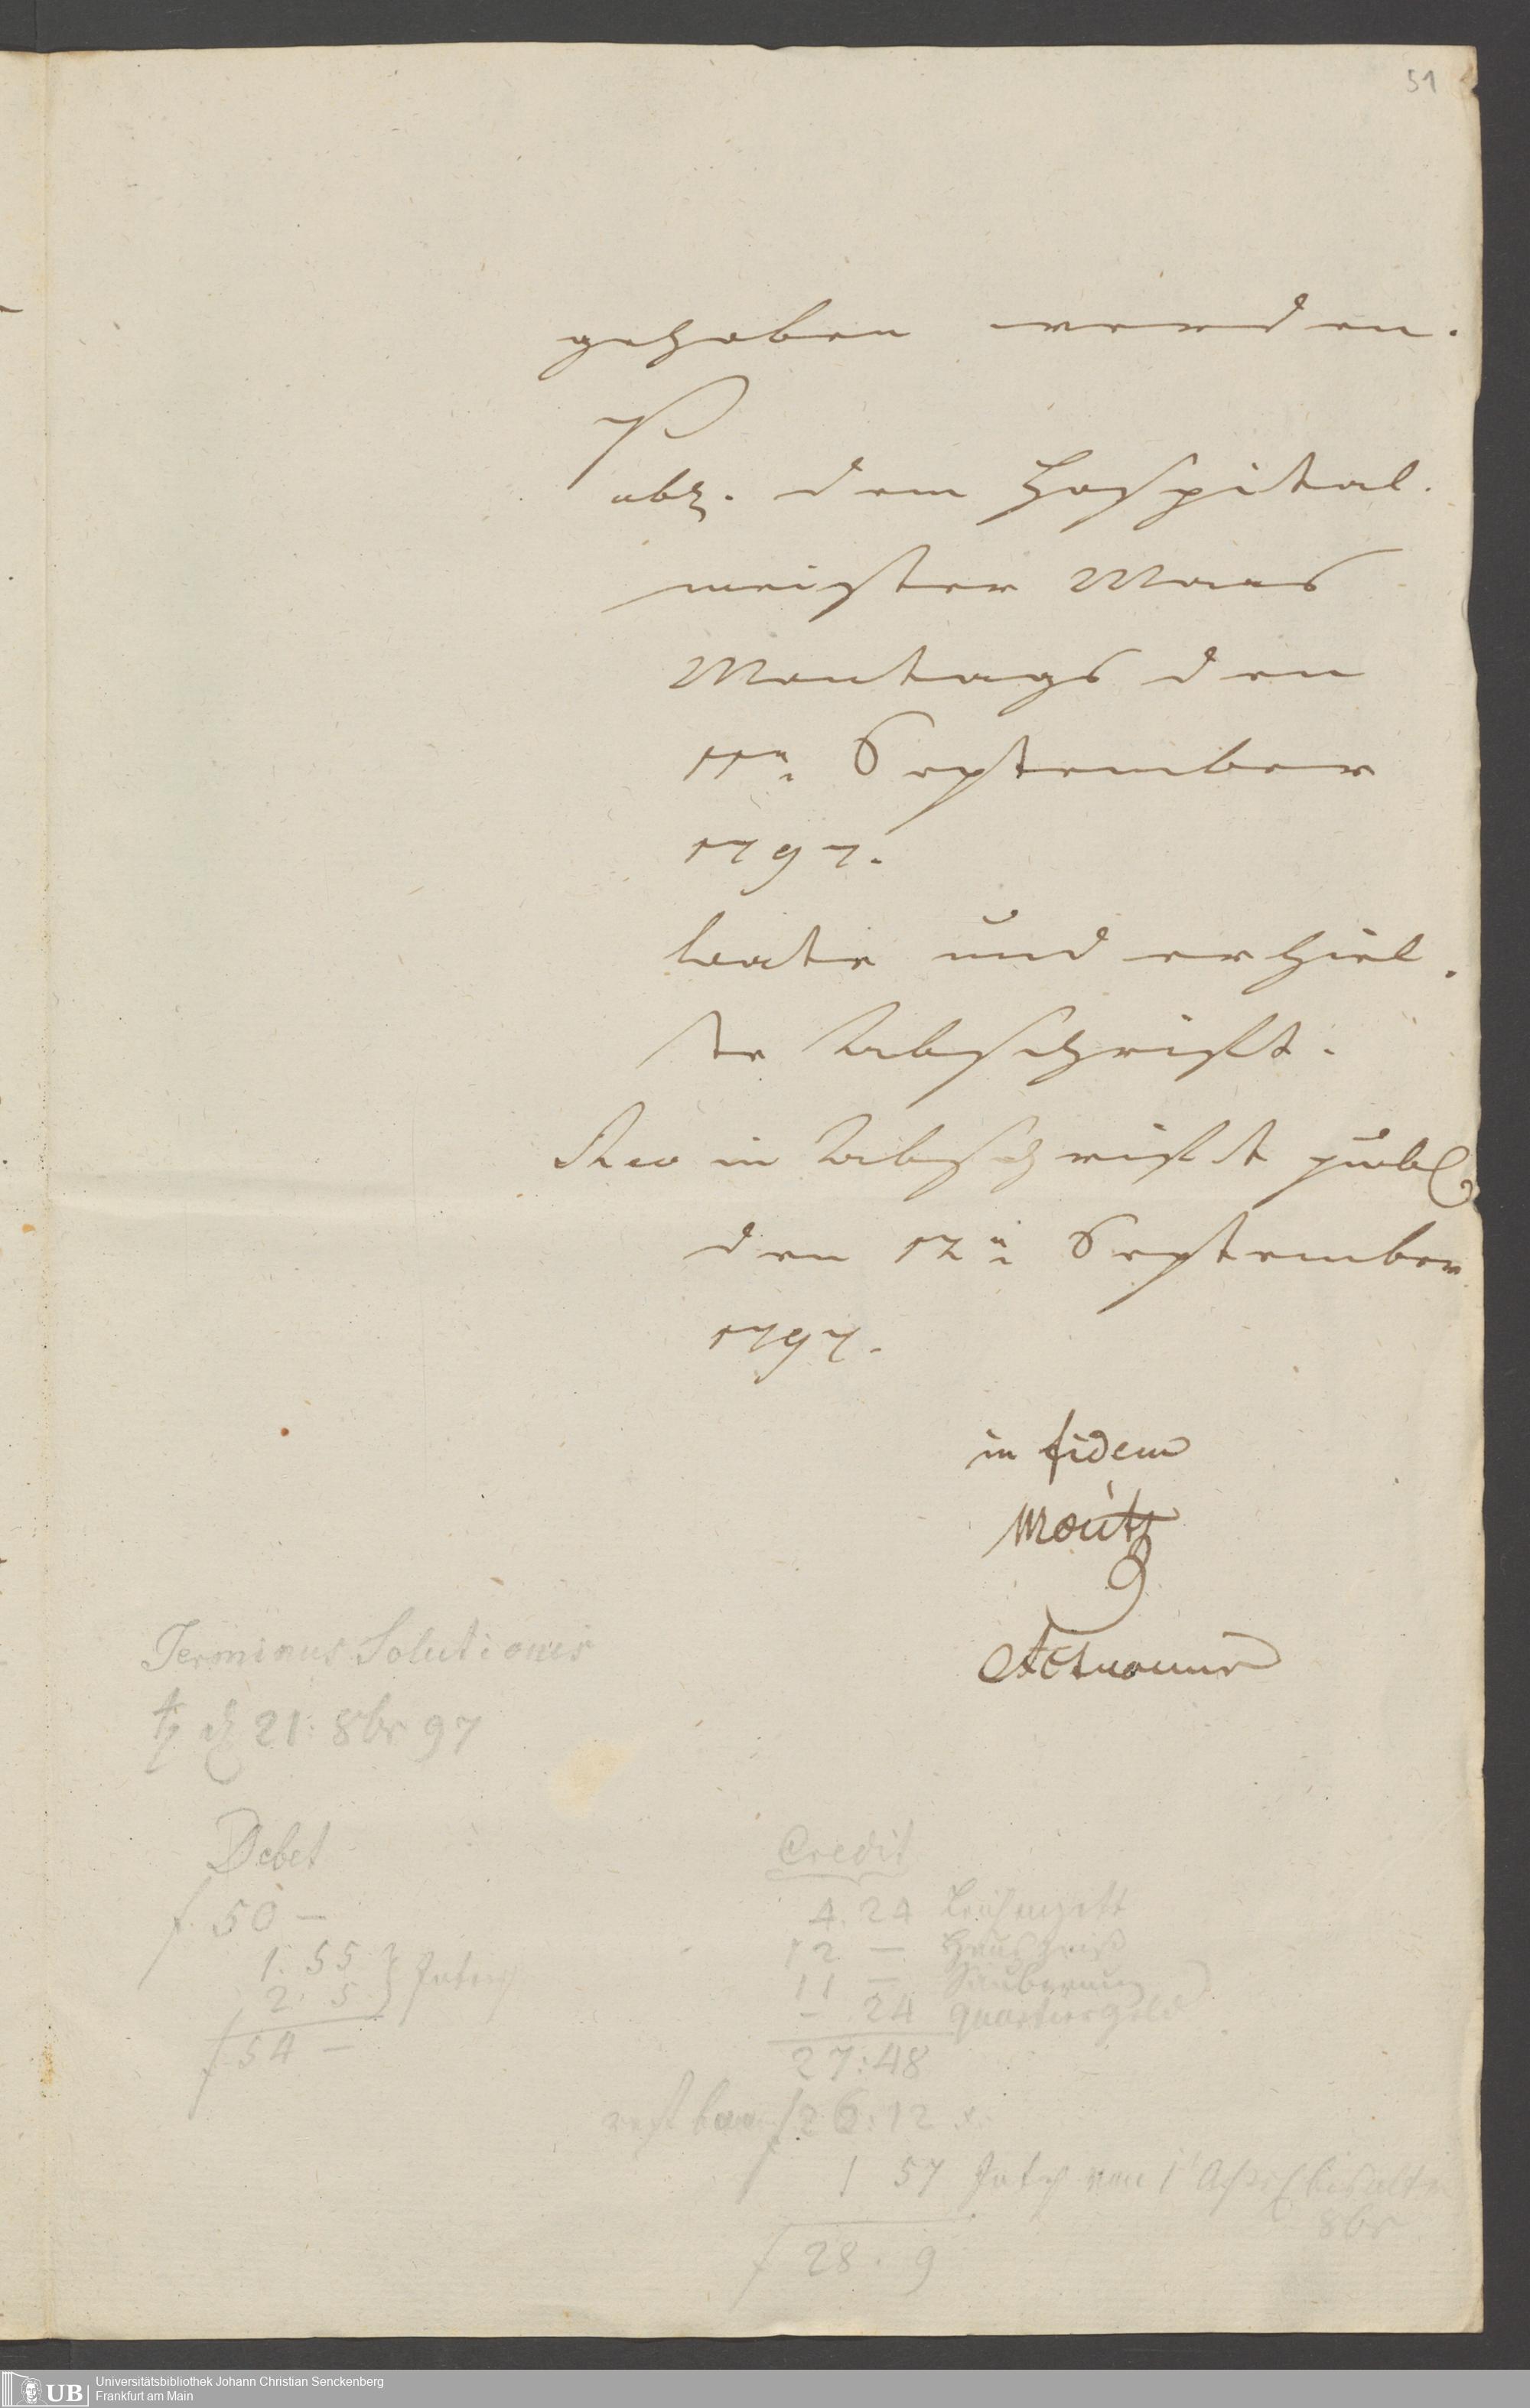 51
gehoben werden.
Publ. dem Hospital-
meister Maas
Montags den
11n. September
1797.
bate und erhiel-
te Abschrift.
Reo in Abschrift publ
den 12n. September
1797.
in fidem
Moritz
Actuarius
Terminus Solutionis
21: 8br 97
Debet
f. 50 —
1. 55
2. 5
f 54 —
Credit
4. 24
12 — Hauszins
11 — Säuberung
— 24 Quartiergeld
27:48
rest f 26:12 x.
1 57 von 1t
8br
f 28. 9
UB Universitätsbibliothek Johann Christian Senckenberg
Frankfurt am Main